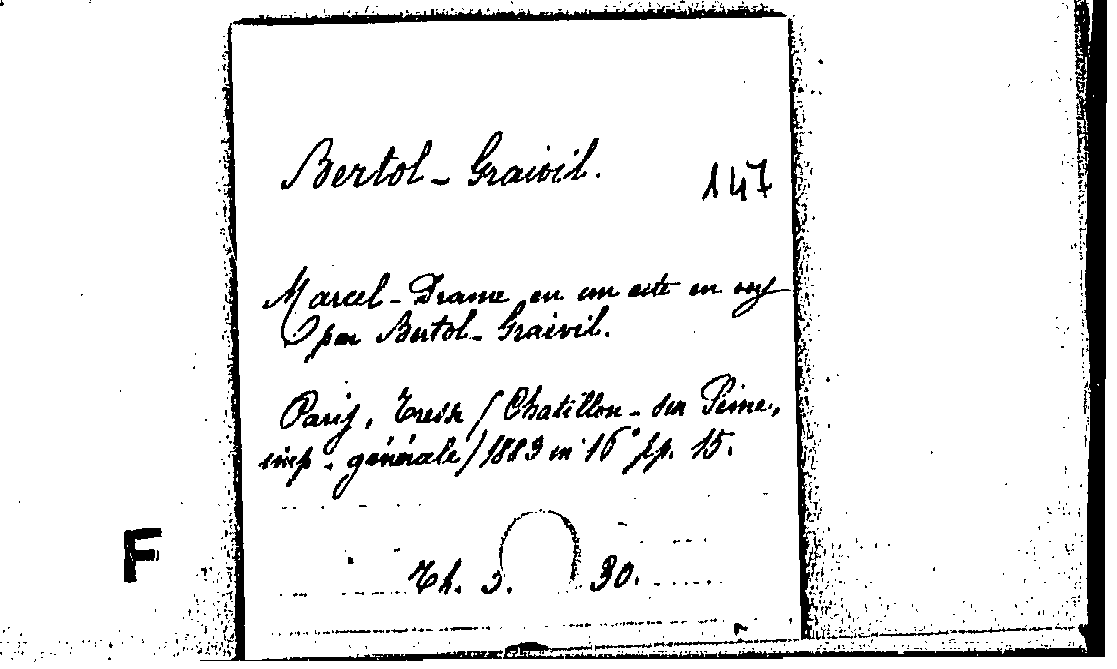 Bertol-Graivil.
147
Marcel - Drame en un acte en vers
par Bertol-Graivil.
Paris, Tresse (Chatillon-sur Seine,
imp. générale) 1883 in 16° pp. 15.
F
Th. 30.